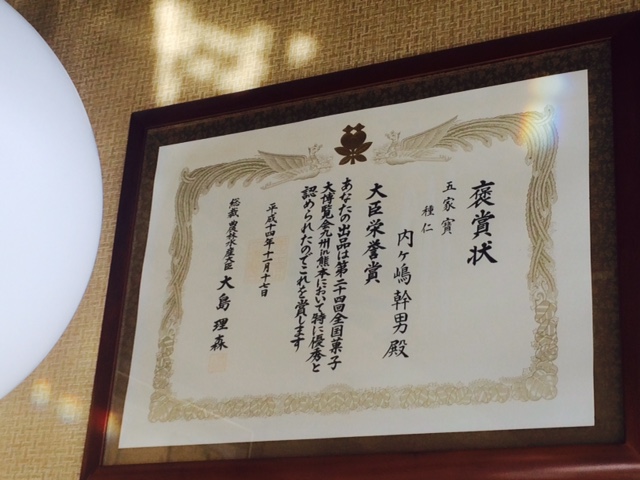 褒賞状
五家寳
種仁
内ヶ嶋幹男殿
大臣栄誉賞
あなたの出品は第二十四回全国菓子
大博覧会九州in熊本において特に優秀と
認められたのでこれを賞します
平成十四年十一月十七日
総裁 農林水産大臣 大島理森